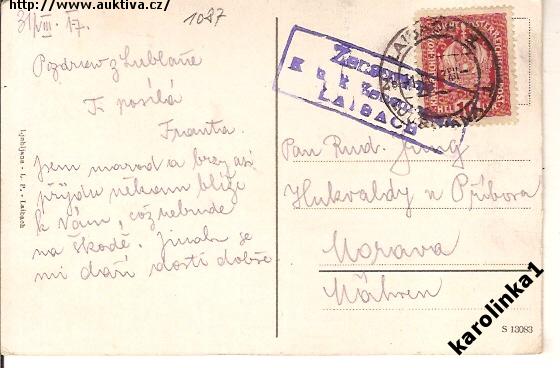 http://www.auktiva.cz/
31/VIII. 17.
1087
Pozdrav z Lublaně
Ti posílá
Franta.
Jsem marod a brzy asi
přijdu někam blíže
k Vám, což nebude
na škodě. Jinak se
mi daří dosti dobře
Ljubljana - L. P. - Laibach
Zensuriert
K. u. k. Zensur
LAIBACH
LAIBACH
Pan Rud. Jung
Hukvaldy u Příbora
Morava
Mähren
S 13083
karolinka1